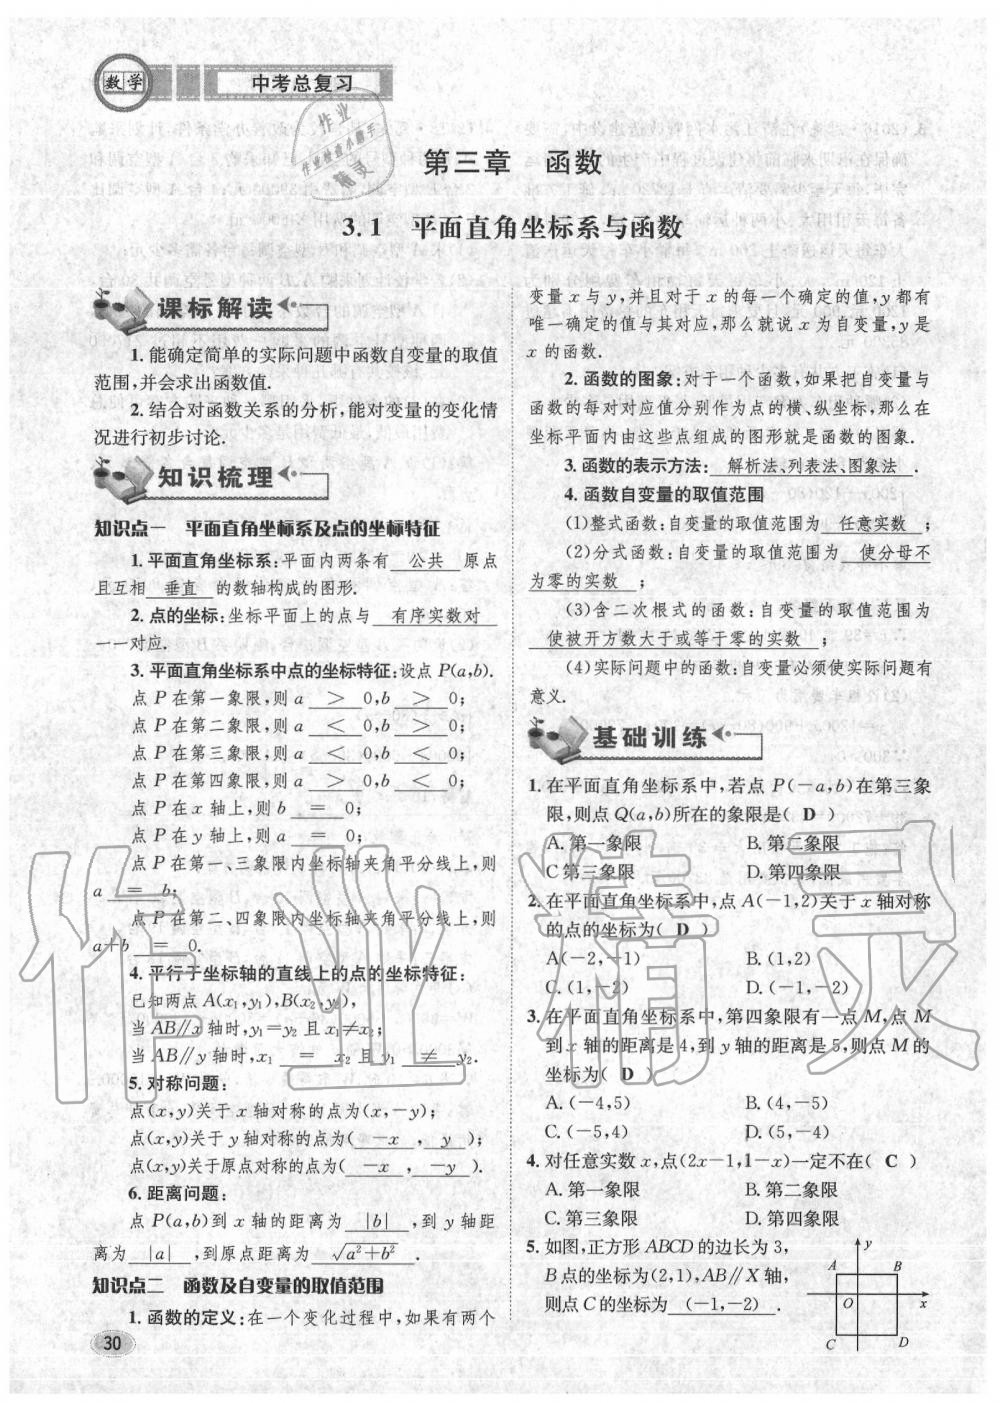 数学
中考总复习
第三章 函数
3.1 平面直角坐标系与函数
课标解读
1. 能确定简单的实际问题中函数自变量的取值
范围,并会求出函数值.
2. 结合对函数关系的分析,能对变量的变化情
况进行初步讨论.
知识梳理
知识点一 平面直角坐标系及点的坐标特征
1. 平面直角坐标系:平面内两条有 公共 原点
且互相 垂直 的数轴构成的图形.
2. 点的坐标:坐标平面上的点与 有序实数对
一一对应.
3. 平面直角坐标系中点的坐标特征:设点 P(a,b).
点 P 在第一象限,则 a > 0,b > 0;
点 P 在第二象限,则 a < 0,b > 0;
点 P 在第三象限,则 a < 0,b < 0;
点 P 在第四象限,则 a > 0,b < 0;
点 P 在 x 轴上,则 b = 0;
点 P 在 y 轴上,则 a = 0;
点 P 在第一、三象限内坐标轴夹角平分线上,则
a = b;
点 P 在第二、四象限内坐标轴夹角平分线上,则
a+b = 0.
4. 平行于坐标轴的直线上的点的坐标特征:
已知两点 A(x₁,y₁),B(x₂,y₂),
当 AB∥x 轴时,y₁=y₂ 且 x₁≠x₂;
当 AB∥y 轴时,x₁ = x₂ 且 y₁ ≠ y₂.
5. 对称问题:
点(x,y)关于 x 轴对称的点为(x,-y);
点(x,y)关于 y 轴对称的点为( -x , y );
点(x,y)关于原点对称的点为( -x , -y ).
6. 距离问题:
点 P(a,b)到 x 轴的距离为 |b| ,到 y 轴距
离为 |a| ,到原点距离为 √(a²+b²) .
知识点二 函数及自变量的取值范围
1. 函数的定义:在一个变化过程中,如果有两个
30
变量 x 与 y,并且对于 x 的每一个确定的值,y 都有
唯一确定的值与其对应,那么就说 x 为自变量,y 是
x 的函数.
2. 函数的图象:对于一个函数,如果把自变量与
函数的每对对应值分别作为点的横、纵坐标,那么在
坐标平面内由这些点组成的图形就是函数的图象.
3. 函数的表示方法: 解析法、列表法、图象法 .
4. 函数自变量的取值范围
(1)整式函数:自变量的取值范围为 任意实数 ;
(2)分式函数:自变量的取值范围为 使分母不
为零的实数 ;
(3)含二次根式的函数:自变量的取值范围为
使被开方数大于或等于零的实数 ;
(4)实际问题中的函数:自变量必须使实际问题有
意义.
基础训练
1. 在平面直角坐标系中,若点 P(-a,b)在第三象
限,则点 Q(a,b)所在的象限是( D )
A. 第一象限 B. 第二象限
C 第三象限 D. 第四象限
2. 在平面直角坐标系中,点 A(-1,2)关于 x 轴对称
的点的坐标为( D )
A(-2,-1) B. (1,2)
C. (1,-2) D. (-1,-2)
3. 在平面直角坐标系中,第四象限有一点 M,点 M
到 x 轴的距离是 4,到 y 轴的距离是 5,则点 M 的
坐标为( D )
A. (-4,5) B. (4,-5)
C. (-5,4) D. (5,-4)
4. 对任意实数 x,点(2x-1,1-x)一定不在( C )
A. 第一象限 B. 第二象限
C. 第三象限 D. 第四象限
5. 如图,正方形 ABCD 的边长为 3,
B 点的坐标为(2,1),AB∥X 轴,
则点 C 的坐标为 (-1,-2) .
y
A B
O x
C D
作业精灵
作业
作业检查小助手
精灵